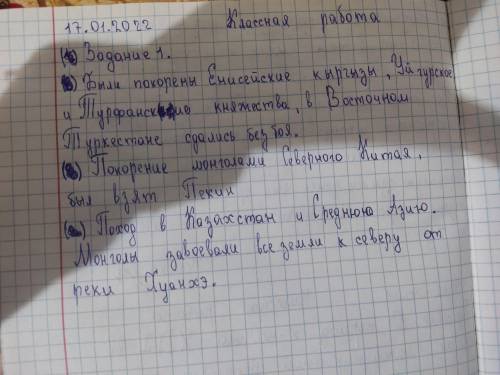 17.01.2022 Классная работа
Задание 1.
Были покорены Енисейские кыргызы, Уйгурское
и Турфанские княжества, в Восточном
Туркестане сдались без боя.
Покорение монголами Северного Китая,
был взят Пекин
Поход в Казахстан и Среднюю Азию.
Монголы завоевали все земли к северу от
реки Хуанхэ.